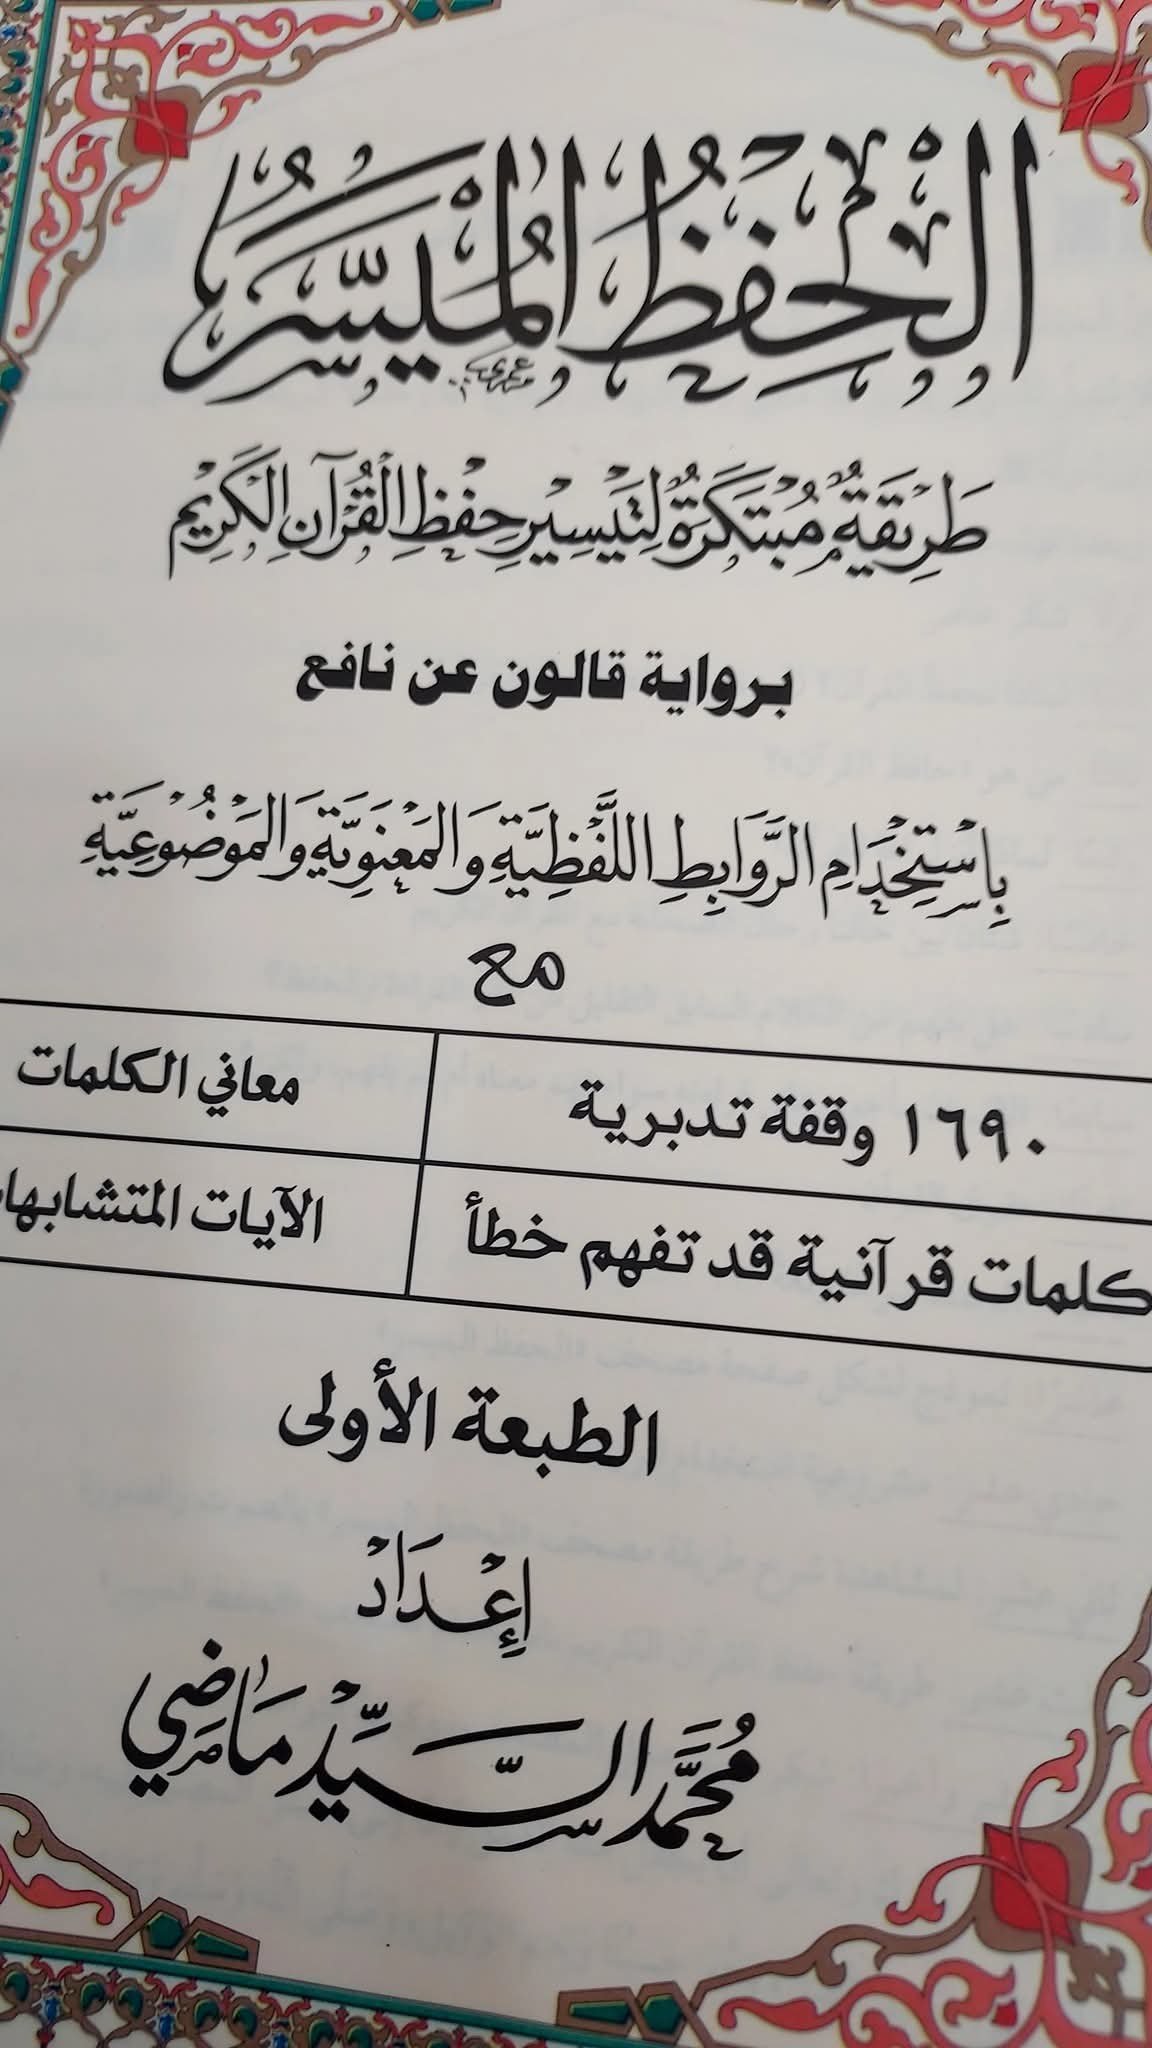 الحِفْظُ المُيَسَّرُ
طَرِيقَةٌ مُبْتَكَرَةٌ لِتَيْسِيرِ حِفْظِ الْقُرْآنِ الْكَرِيمِ
برواية قالون عن نافع
بِاسْتِخْدَامِ الرَّوَابِطِ اللَّفْظِيَّةِ وَالْمَعْنَوِيَّةِ وَالْمَوْضُوعِيَّةِ
مع
١٦٩٠ وقفة تدبرية معاني الكلمات
كلمات قرآنية قد تفهم خطأ الآيات المتشابها
الطبعة الأولى
إِعْدَادْ
مُحَمَّد السَّيِّدْ مَاضِي